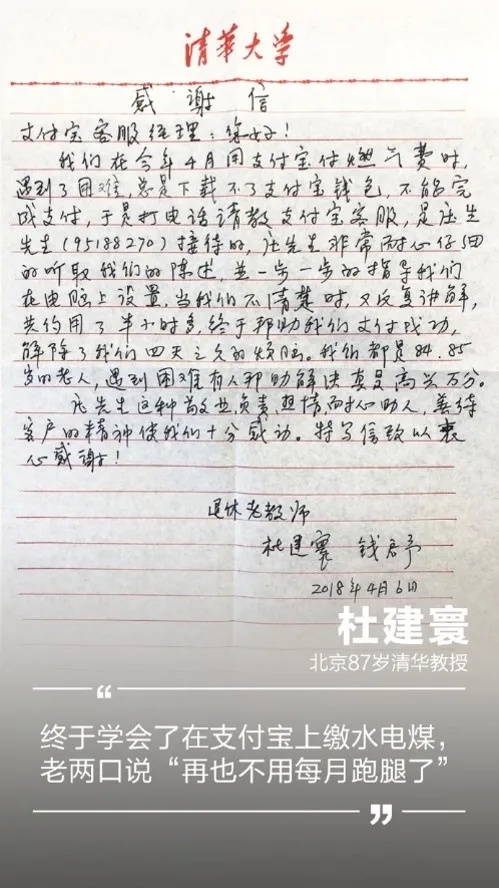 清華大学
感谢信
支付宝客服经理：您好！
我们在今年4月用支付宝付燃气费时，
遇到了困难，总是下载不了支付宝钱包，不能完
成支付，于是打电话请教支付宝客服，是庄生
先生（95188270）接待的，庄先生非常耐心仔细
的听取我们的陈述，并一步一步的指导我们
在电脑上设置，当我们不清楚时，又反复讲解，
共约用了半小时多，终于帮助我们支付成功，
解除了我们四天之久的烦脑。我们都是84.85
岁的老人，遇到困难有人帮助解决真是高兴万分。
庄先生这种敬业，负责，热情，耐心助人，善待
客户的精神使我们十分感动。特写信致以衷
心感谢！
退休老教师
杜建寰 钱启予
2018年4月6日
杜建寰
北京87岁清华教授
“
终于学会了在支付宝上缴水电煤，
老两口说“再也不用每月跑腿了”
”